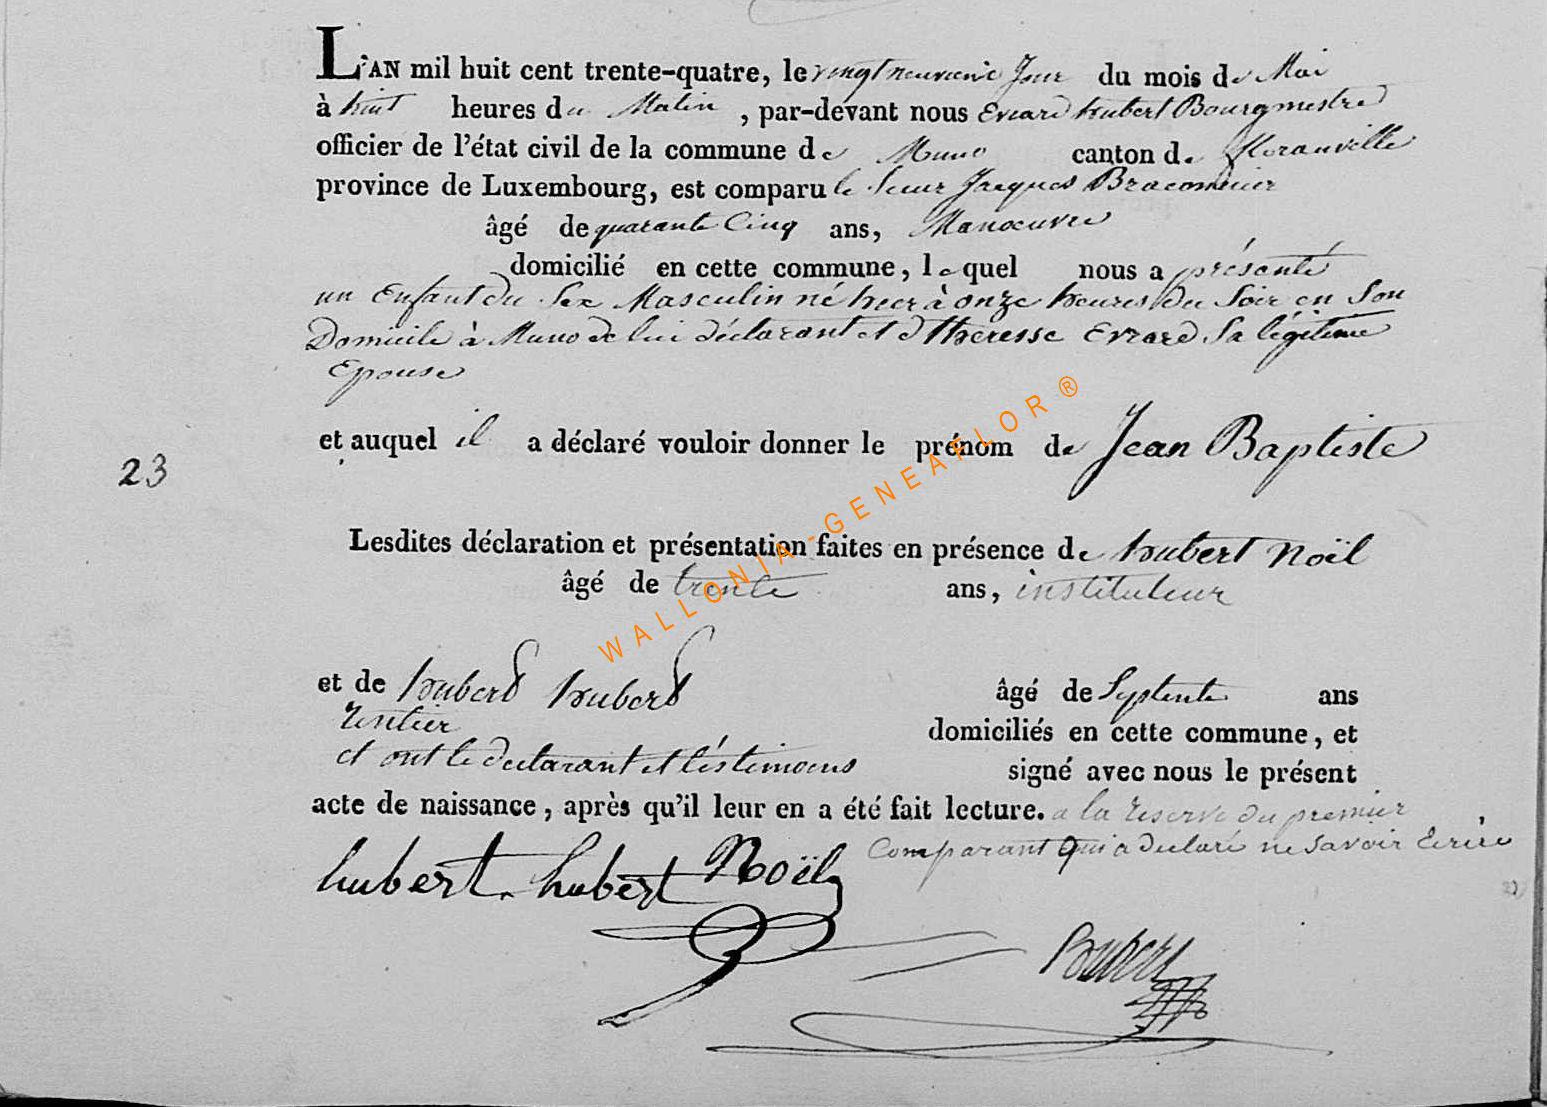 L'AN mil huit cent trente-quatre, le vingt neuvieme Jour du mois de Mai
à huit heures du Matin, par-devant nous Evrard hubert Bourgmestre
officier de l'état civil de la commune de Muno canton de floranville
province de Luxembourg, est comparu le Sieur Jacques Braconnier
âgé de quarante Cinq ans, Manoeuvre
domicilié en cette commune, lequel nous a présenté
un Enfant du Sex Masculin né hier à onze heures du Soir en Son
Domicile à Muno de lui déclarant et d theresse Evrard Sa légitime
Epouse
et auquel il a déclaré vouloir donner le prénom de Jean Baptiste
23
Lesdites déclaration et présentation faites en présence de hubert Noël
âgé de trente ans, instituteur
et de hubert hubert âgé de Septente ans
rentier domiciliés en cette commune, et
et ont le declarant et les temoins signé avec nous le présent
acte de naissance, après qu'il leur en a été fait lecture. a la reserve du premier
Comparant Qui a declaré ne savoir Ecrire
hubert hubert Noël
WALLONIA-GENEAFLOR ®